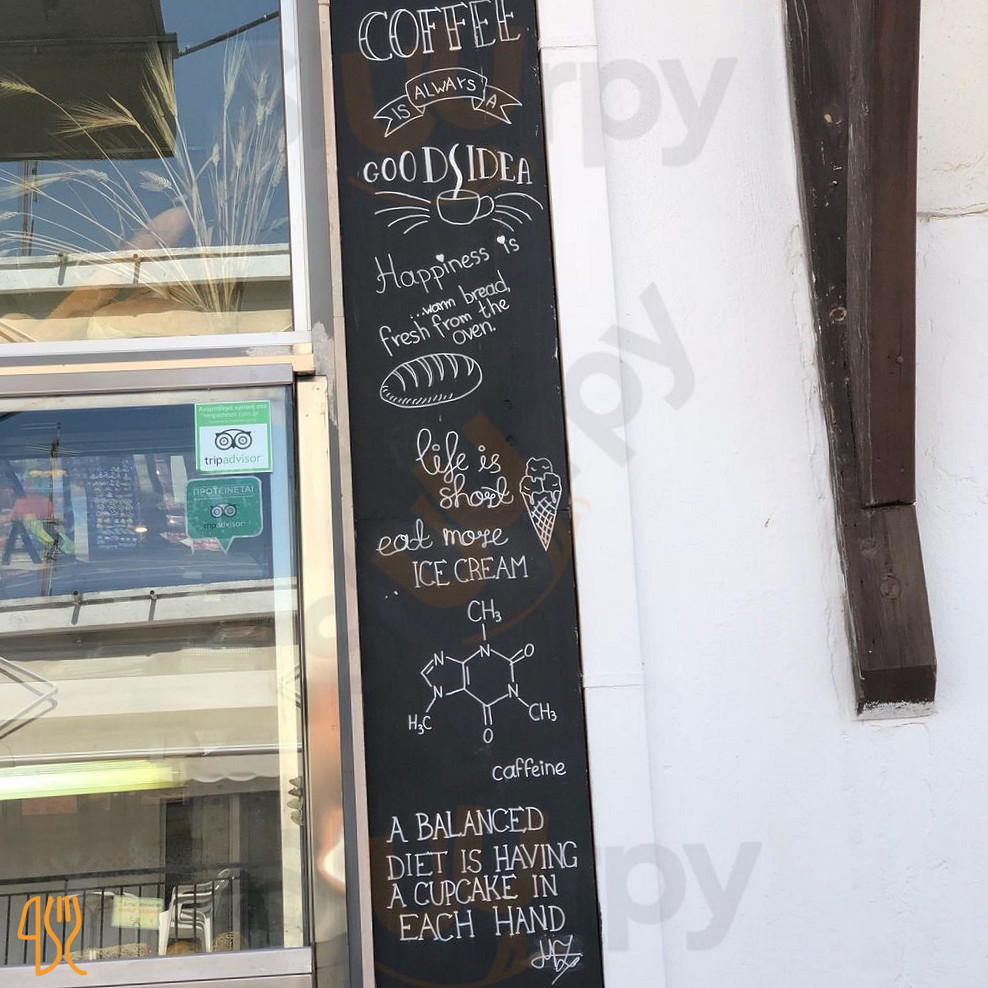 COFFEE
IS ALWAYS A
GOOD IDEA
Happiness is
...warm bread,
fresh from the
oven.
life is
short
eat more
ICE CREAM
CH₃
N
N
O
N
N
H₃C
O
CH₃
caffeine
A BALANCED
DIET IS HAVING
A CUPCAKE IN
EACH HAND
tripadvisor
ΠΡΟΤΕΙΝΕΤΑΙ
tripadvisor